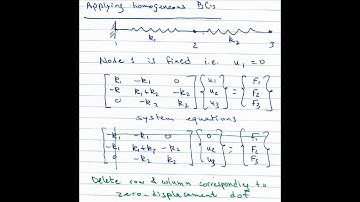 Applying homogeneous BCs
1 k₁ 2 k₂ 3
Node 1 is fixed i.e. u₁ = 0
[ k₁ -k₁ 0 ] { u₁ } = { F₁ }
[ -k₁ k₁+k₂ -k₂ ] { u₂ } = { F₂ }
[ 0 -k₂ k₂ ] { u₃ } = { F₃ }
system equations
[ k₁ -k₁ 0 ] { 0 } = { F₁ }
[ -k₁ k₁+k₂ -k₂ ] { u₂ } = { F₂ }
[ 0 -k₂ k₂ ] { u₃ } = { F₃ }
Delete row & column correspondly to
zero-displacement dof